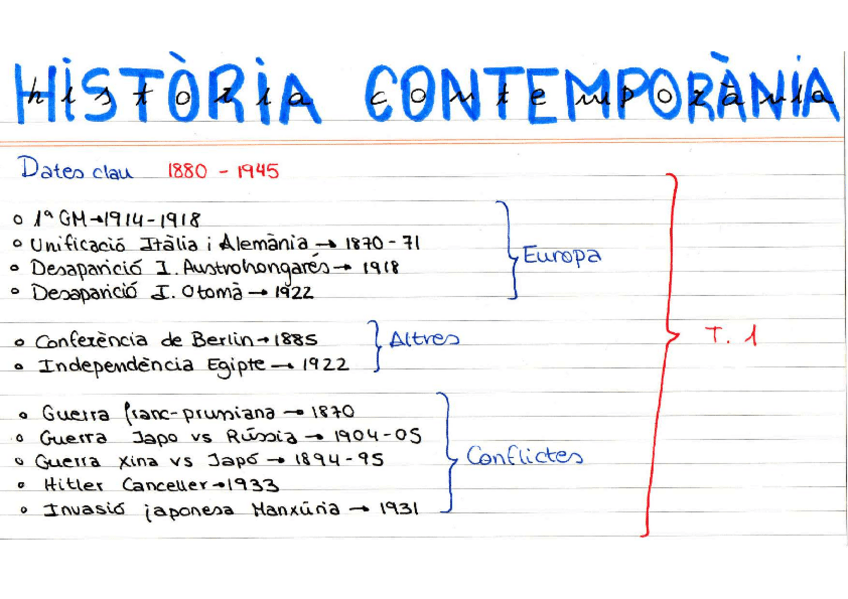 HISTÒRIA CONTEMPORÀNIA
història contemporània
Dates clau 1880 - 1945
1ª GM→1914-1918
Unificació Itàlia i Alemània → 1870-71
Desaparició I. Austrohongarés→ 1918
Desaparició I. Otomà → 1922
Europa
Conferència de Berlin→1885
Independència Egipte → 1922
Altres
Guerra franc-prussiana → 1870
Guerra Japo vs Rússia → 1904-05
Guerra Xina vs Japó → 1894-95
Hitler Canceller→1933
Invasió japonesa Manxúria → 1931
Conflictes
T. 1